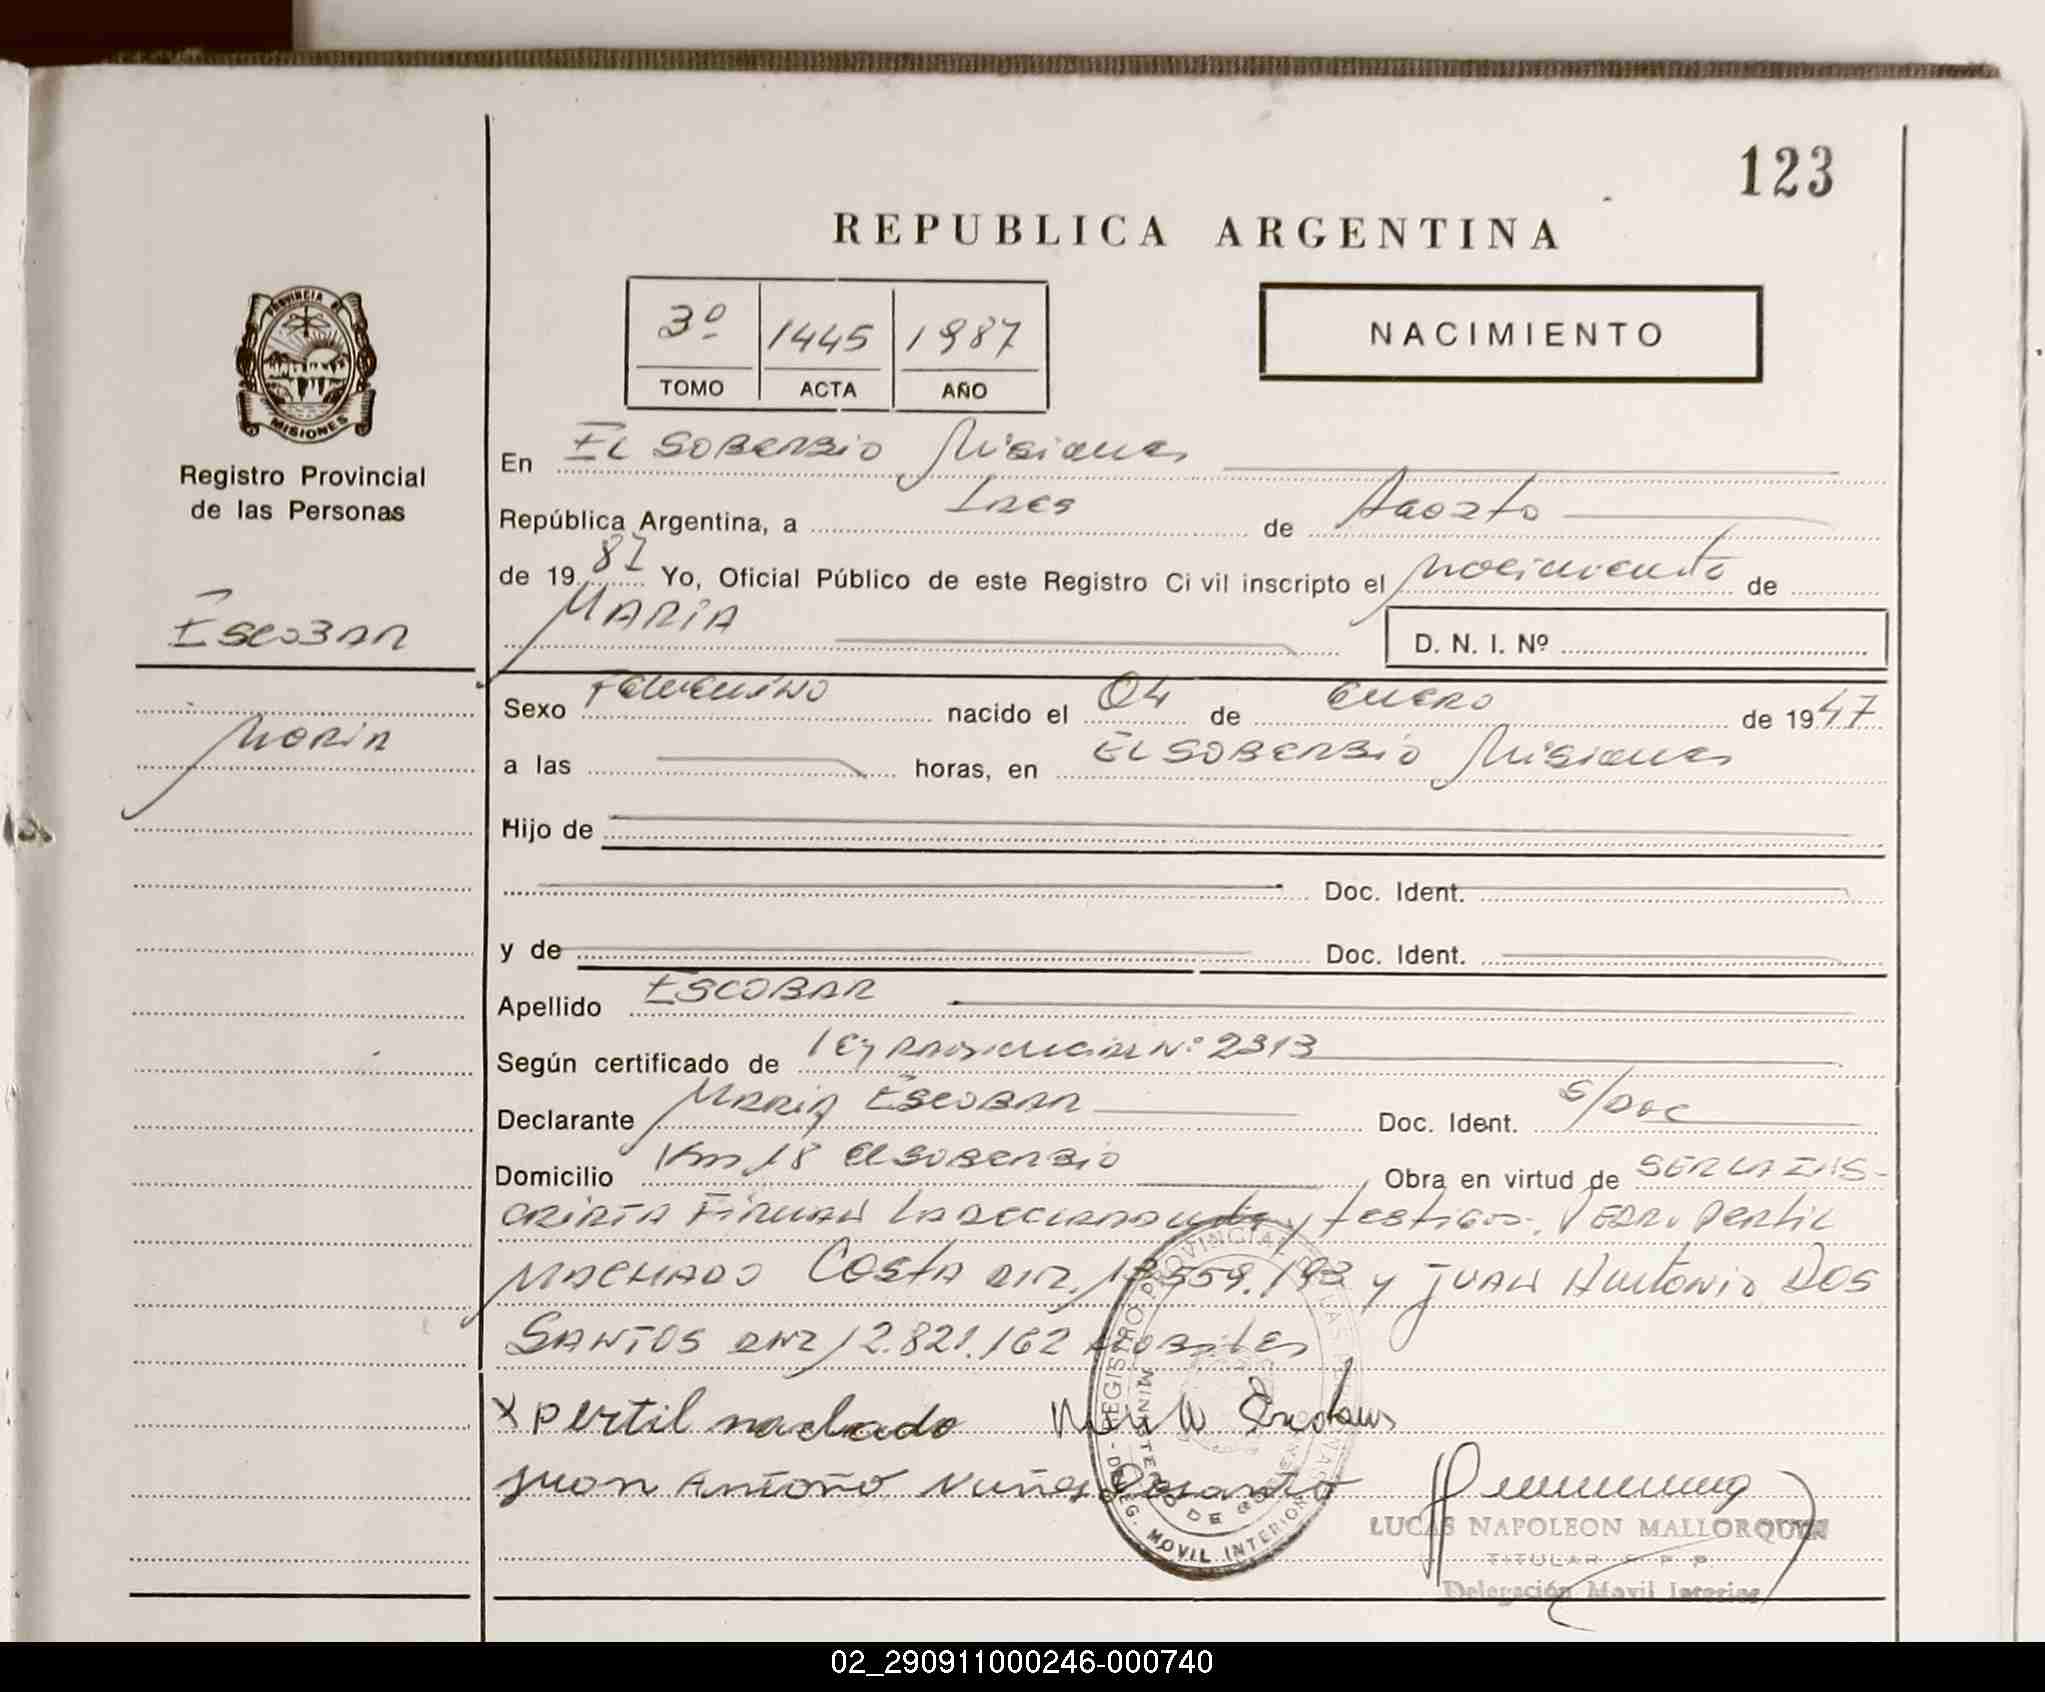 123
REPUBLICA ARGENTINA
3º 1445 1987
TOMO ACTA AÑO
NACIMIENTO
PROVINCIA DE
MISIONES
Registro Provincial
de las Personas
Escobar
Maria
En El Soberbio Misiones
República Argentina, a Tres de Agosto
de 1987 Yo, Oficial Público de este Registro Civil inscripto el nacimiento de
MARIA
D. N. I. Nº
Sexo Femenino nacido el 04 de Enero de 1947
a las horas, en El Soberbio Misiones
Hijo de
Doc. Ident.
y de Doc. Ident.
Apellido ESCOBAR
Según certificado de ley provincial Nº 2313
Declarante Maria Escobar Doc. Ident. s/Doc
Domicilio Km 18 El Soberbio Obra en virtud de SER LA INS-
CRIPTA Firman La declarante y testigos: Pedro Pertil
MACHADO COSTA DNI. 559.193 y JUAN Antonio DOS
SANTOS DNI 12.821.162 habiles
X pertil machado
juan Antoño Nuñes
REGISTRO PROVINCIAL DE LAS PERSONAS
MINISTERIO DE GOBIERNO
DELEG. MOVIL INTERIOR
LUCAS NAPOLEON MALLORQUIN
TITULAR R. P. P.
Delegación Movil Interior
02_290911000246-000740